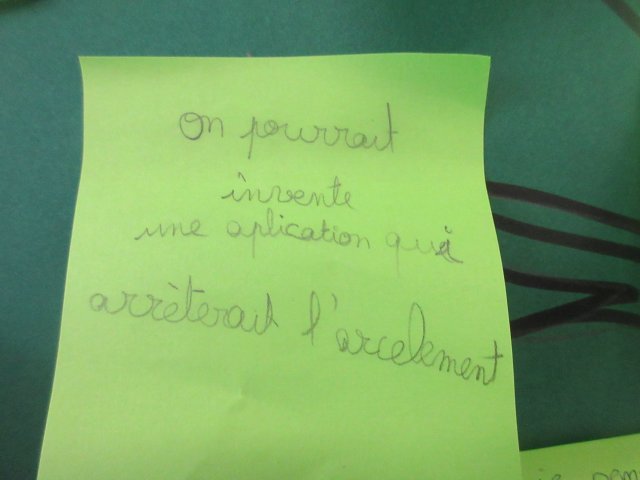 on pourrait
invente
une aplication qui
arrèterait l'arcelement